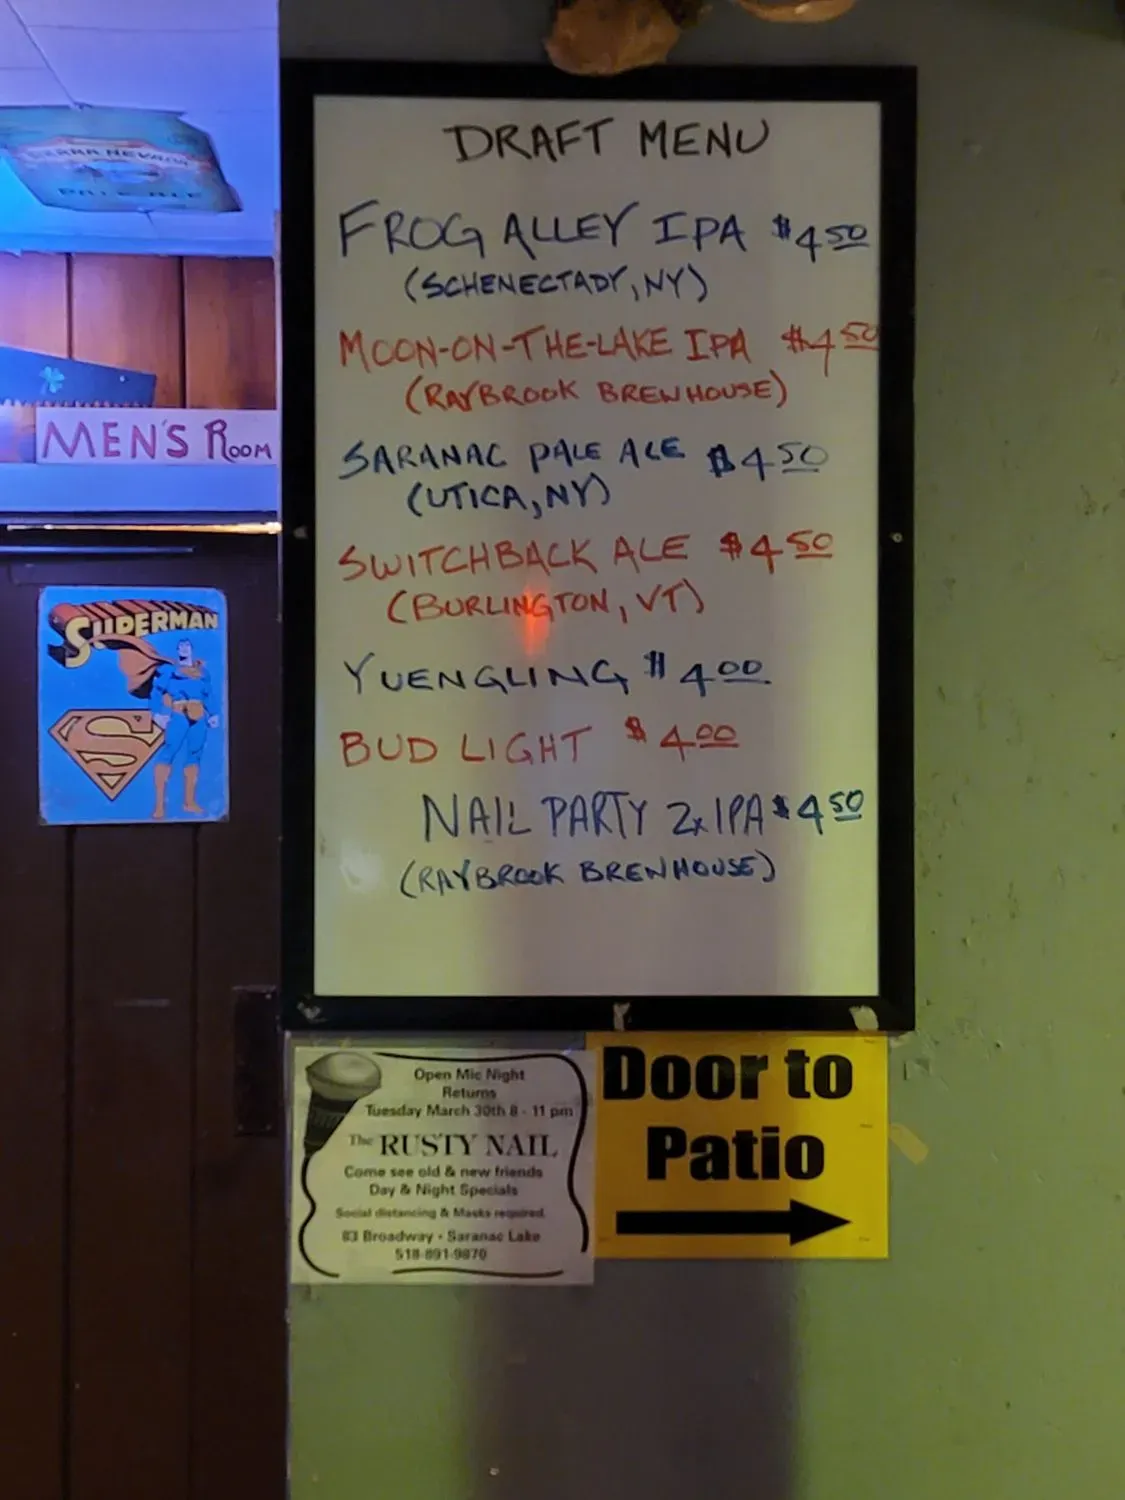 DRAFT MENU
FROG ALLEY IPA $4.50
(SCHENECTADY, NY)
MOON-ON-THE-LAKE IPA $4.50
(RAYBROOK BREWHOUSE)
SARANAC PALE ALE $4.50
(UTICA, NY)
SWITCHBACK ALE $4.50
(BURLINGTON, VT)
YUENGLING $4.00
BUD LIGHT $4.00
NAIL PARTY 2x IPA $4.50
(RAYBROOK BREWHOUSE)
SIERRA NEVADA
PALE ALE
MEN'S ROOM
SUPERMAN
S
Open Mic Night
Returns
Tuesday March 30th 8 - 11 pm
The RUSTY NAIL
Come see old & new friends
Day & Night Specials
Social distancing & Masks required.
83 Broadway • Saranac Lake
518-891-9870
Door to
Patio